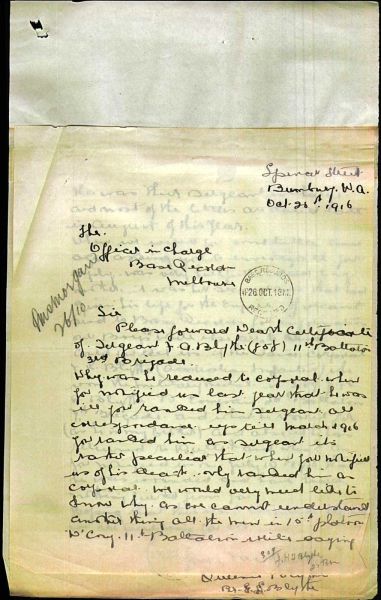 Spencer Street
Bunbury. W.A.
Oct. 25th. 1916
The.
Officer in Charge
Base Records
Melbourne
BASE RECORDS
26 OCT. 191
Sir
Please forward Death Certificate
of Sergeant F. A. Blythe (908) 11th Battalion
3rd Brigade.
Why was he reduced to corporal when
you notified us last year that he was
ill you ranked him sergeant all
correspondence up till March 1916
you ranked him as sergeant its
rather peculiar that when you notified
us of his death only ranked him as
corporal we would very much like to
know why as we cannot understand
another thing all the men in 15th platoon
D Coy. 11th Battalion writes saying
Blythe